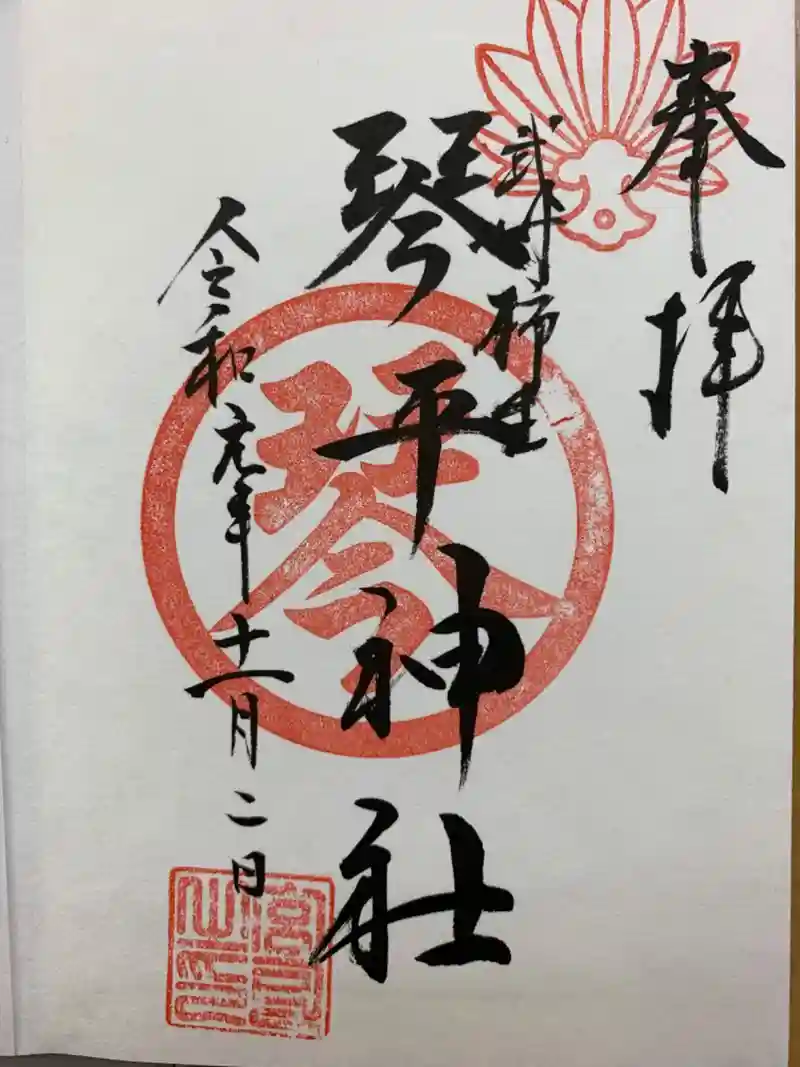 奉拝
武州柿生
琴平神社
琴
令和元年十一月二日